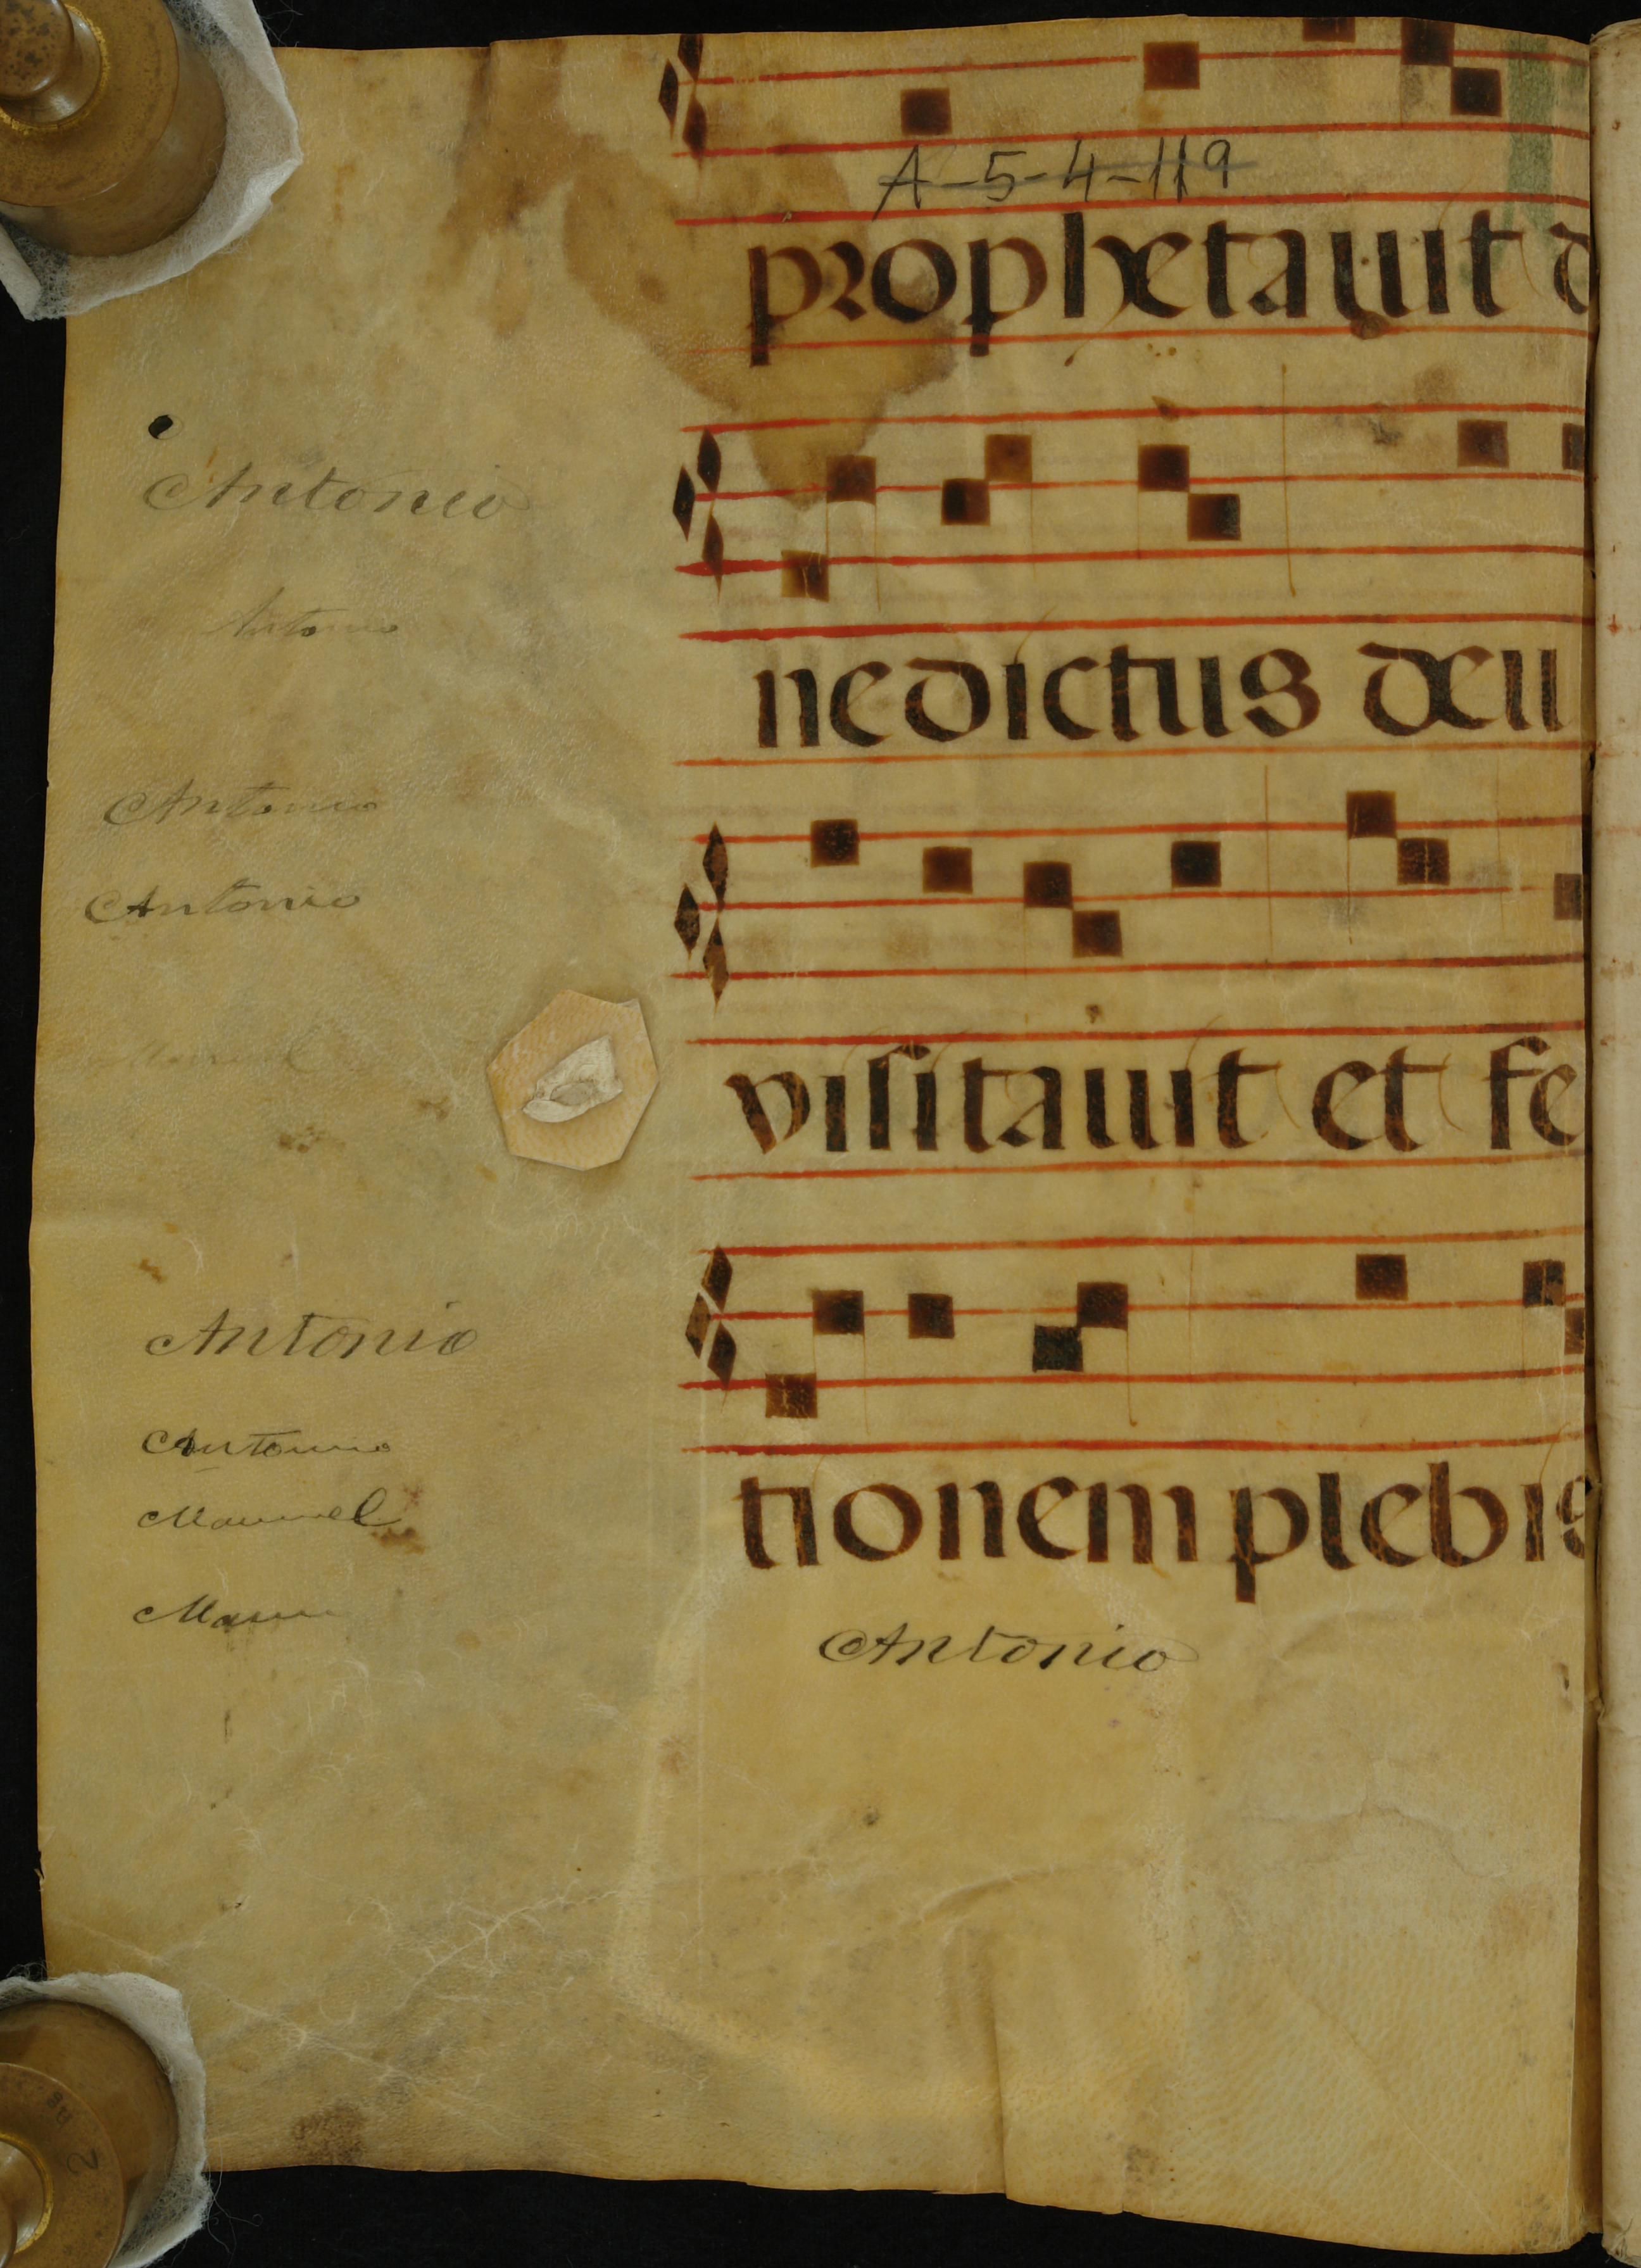 A-5-4-119
prophetauit d
Antonio
Antonio
nedictus deu
Antonio
Antonio
Manuel
visitauit et fe
Antonio
Antonio
Manuel
tionem plebis
Antonio